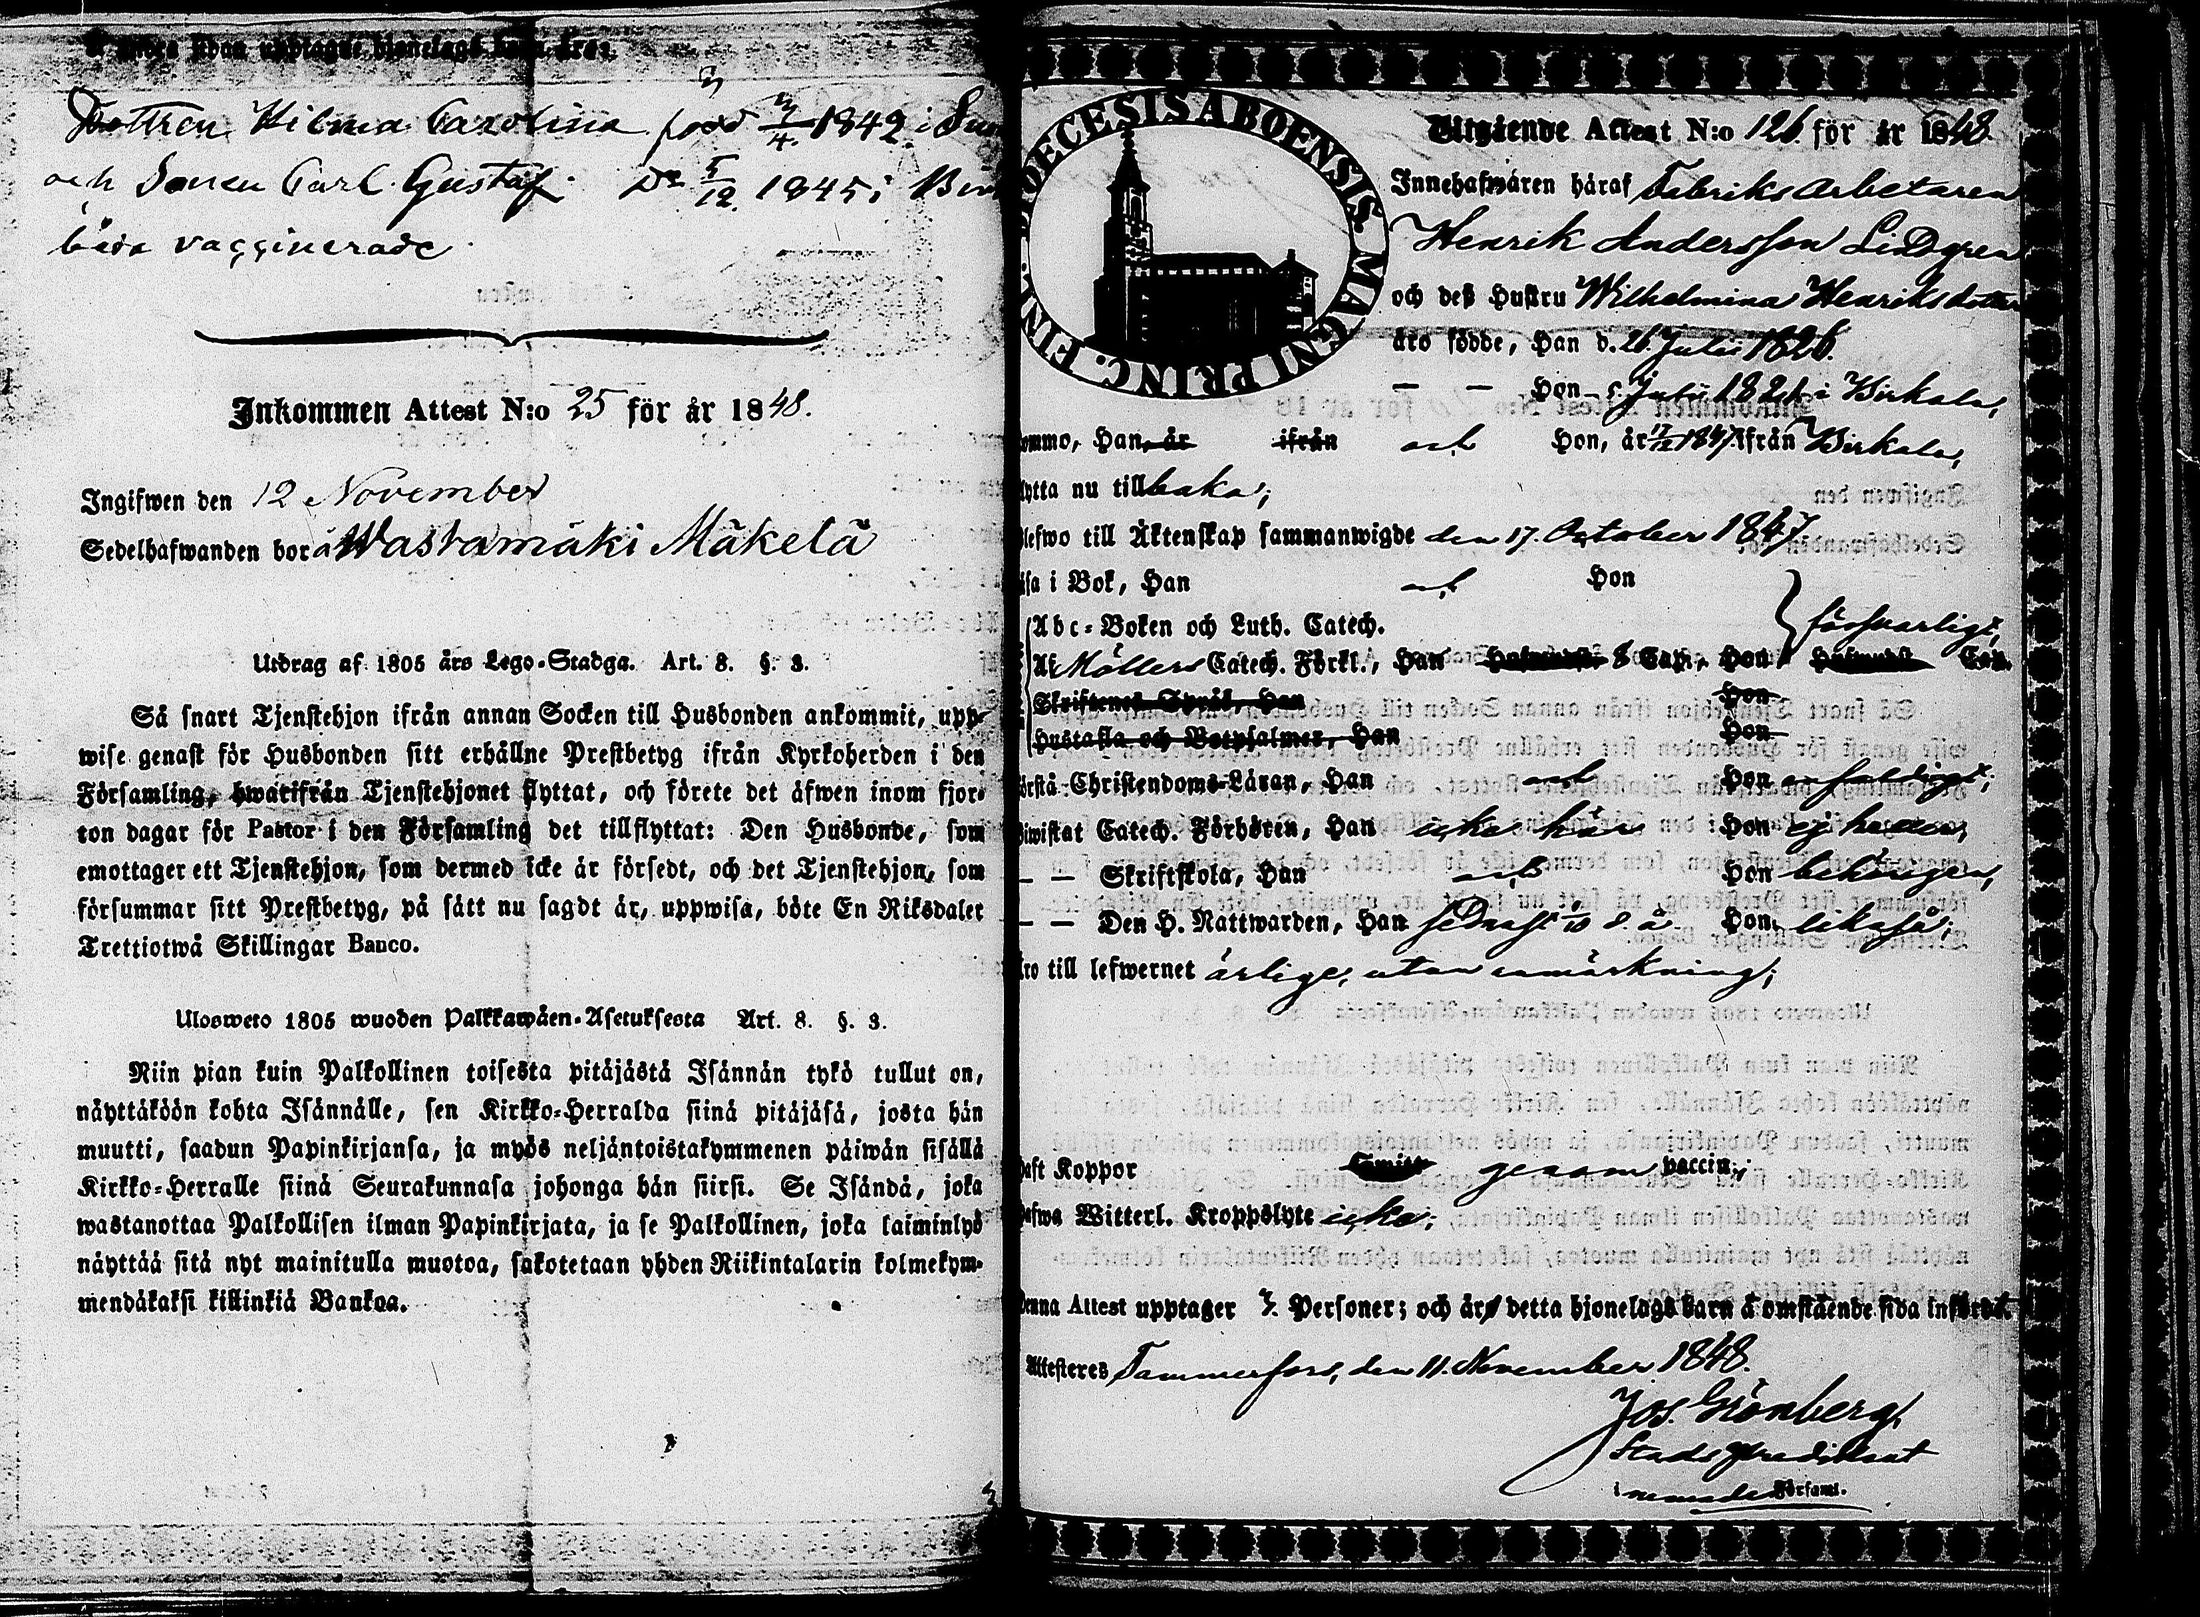 Dottren Wilma Carolina född 3/4 1842 i
och Sonen Carl Gustaf Do 5/12. 1845 i
båda vaccinerade
Inkommen Attest N:o 25 för år 1848.
Ingifwen den 12 November
Sedelhafwanden bor å Wastamäki Mäkelä
Utdrag af 1805 års Lego-Stadga. Art. 8. §. 3.
Så snart Tjenstehjon ifrån annan Socken till Husbonden ankommit, upp-
wise genast för Husbonden sitt erhållne Prestbetyg ifrån Kyrkoherden i den
Församling, hwarifrån Tjenstehjonet flyttat, och förete det äfwen inom fjor-
ton dagar för Pastor i den Församling det tillflyttat: Den Husbonde, som
emottager ett Tjenstehjon, som dermed icke är försedt, och det Tjenstehjon, som
försummar sitt Prestbetyg, på sätt nu sagdt är, uppwisa, böte En Riksdaler
Trettiotwå Skillingar Banco.
Ulosweto 1805 wuoden Palkkawäen-Asetuksesta Art. 8. §. 3.
Niin pian kuin Palkollinen toisesta pitäjästä Isännän tykö tullut on,
näyttäköön kohta Isännälle, sen Kirkko-Herralda siinä pitäjäsä, josta hän
muutti, saadun Papinkirjansa, ja myös neljäntoistakymmenen päiwän sisällä
Kirkko-Herralle siinä Seurakunnasa johonga hän siirsi. Se Isändä, joka
wastanottaa Palkollisen ilman Papinkirjata, ja se Palkollinen, joka laiminlyö
näyttää sitä nyt mainitulla muotoa, sakotetaan yhden Riikintalarin kolmekym-
mendäkaksi killinkiä Bankoa.
DIOECESIS ABOENSIS. MAGNI PRINC. FINL.
Utgående Attest N:o 126 för år 1848.
Innehafwaren häraf Fabriks Arbetaren
Henrik Andersson Lindgren
och deß Hustru Wilhelmina Henriksdotter
äro födde, Han d. 26 Julii 1826.
— — Hon 5 Julii 1821 i Birkala,
Han, år ifrån och Hon, år 17/12 1847 ifrån Birkala,
nu tillbaka;
till Äktenskap sammanwigde den 17. October 1847
i Bok, Han och Hon
Abc-Boken och Luth. Catech. försvarligt,
Af Möllers Catech. Förkl., Han Hufwudst. 8 Cap., Hon Hufwudst Cap.
Skriftenes Språk, Han Hon
Hustafla och Botpsalmer, Han Hon
Christendoms-Läran, Han och Hon
Catech. Förhören, Han icke här Hon ej heller,
— — Skriftskola, Han och Hon behörigen,
— — Den H. Nattwarden, Han sednast d. å. Hon likaså;
till lefwernet ärlige, utan anmärkning;
Koppor genom vaccin;
Witterl. Kroppslyte icke;
Denna Attest upptager Personer; och äro detta hjonelags barn å omstående sida införda.
Attesteres Tammerfors, den 11. November 1848.
Jos. Grönberg
Stads Predikant
i nemnde Församl.